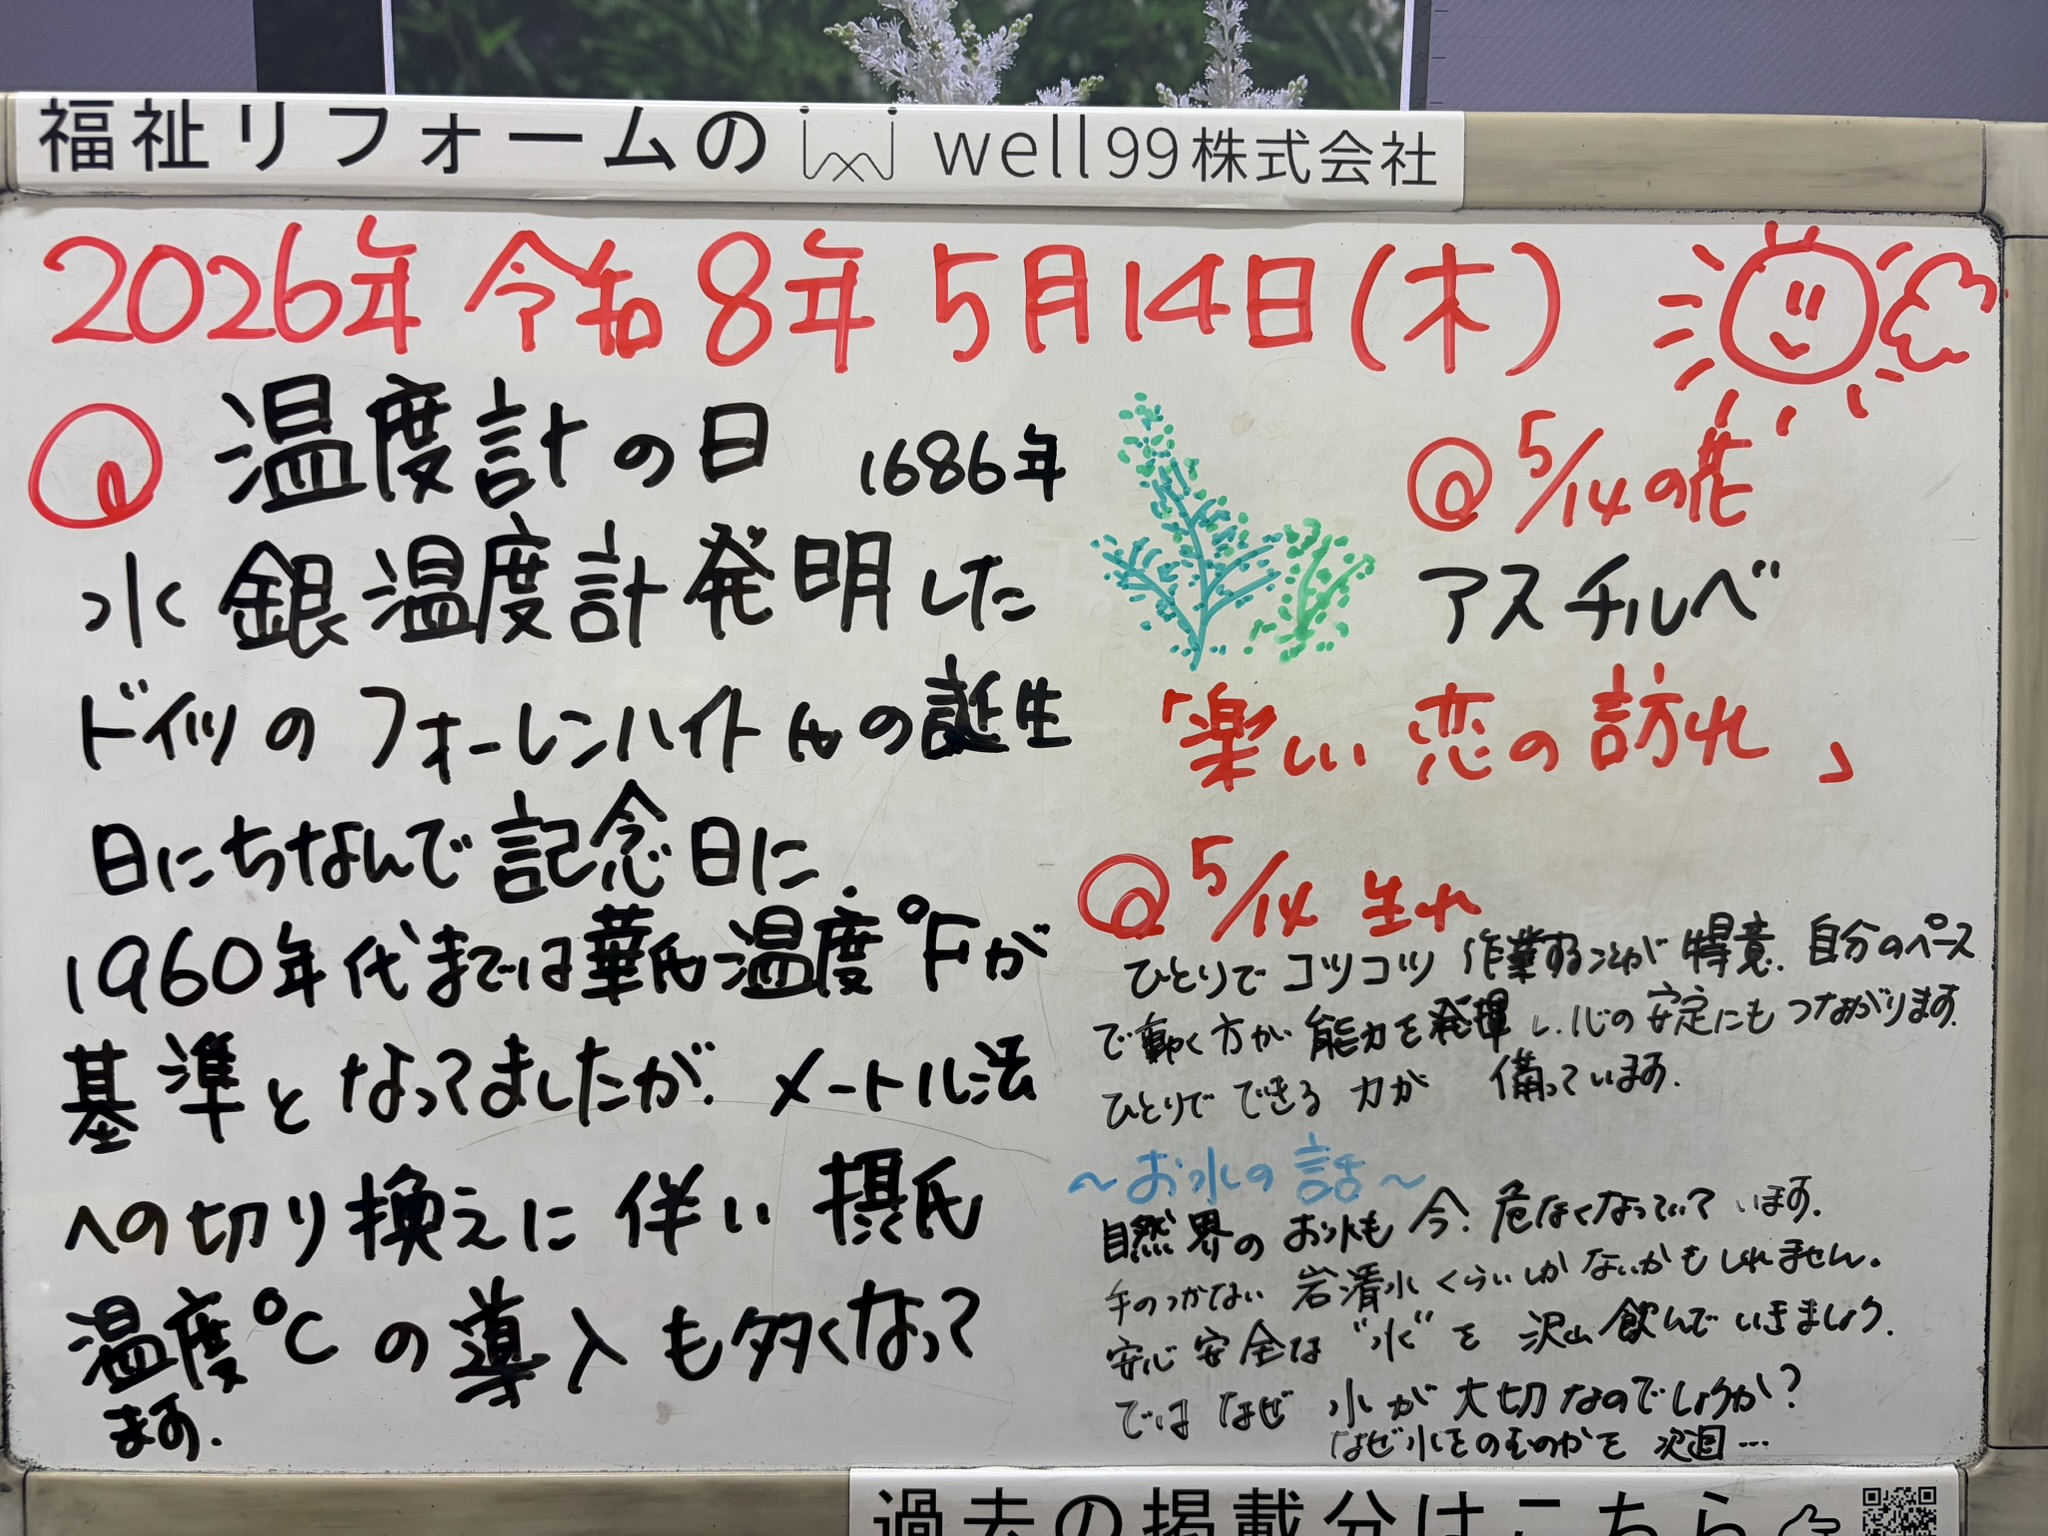 福祉リフォームの well99株式会社
2026年 令和8年 5月14日(木)
温度計の日 1686年
水銀温度計発明した
ドイツのフォーレンハイト氏の誕生
日にちなんで記念日に.
1960年代までは華氏温度°Fが
基準となってましたが、メートル法
への切り換えに伴い摂氏
温度°Cの導入も多くなって
ます.
5/14の花
アスチルベ
「楽しい恋の訪れ」
5/14 生れ
ひとりでコツコツ作業することが得意.自分のペース
で動く方が能力を発揮し、心の安定にもつながります.
ひとりでできる力が備っています.
～お水の話～
自然界のお水も今、危なくなっていています.
手のつかない岩清水くらいしかないかもしれません。
安心安全な"水"を沢山飲んでいきましょう.
ではなぜ水が大切なのでしょうか?
なぜ水をのむのかを次回…
過去の掲載分はこちら